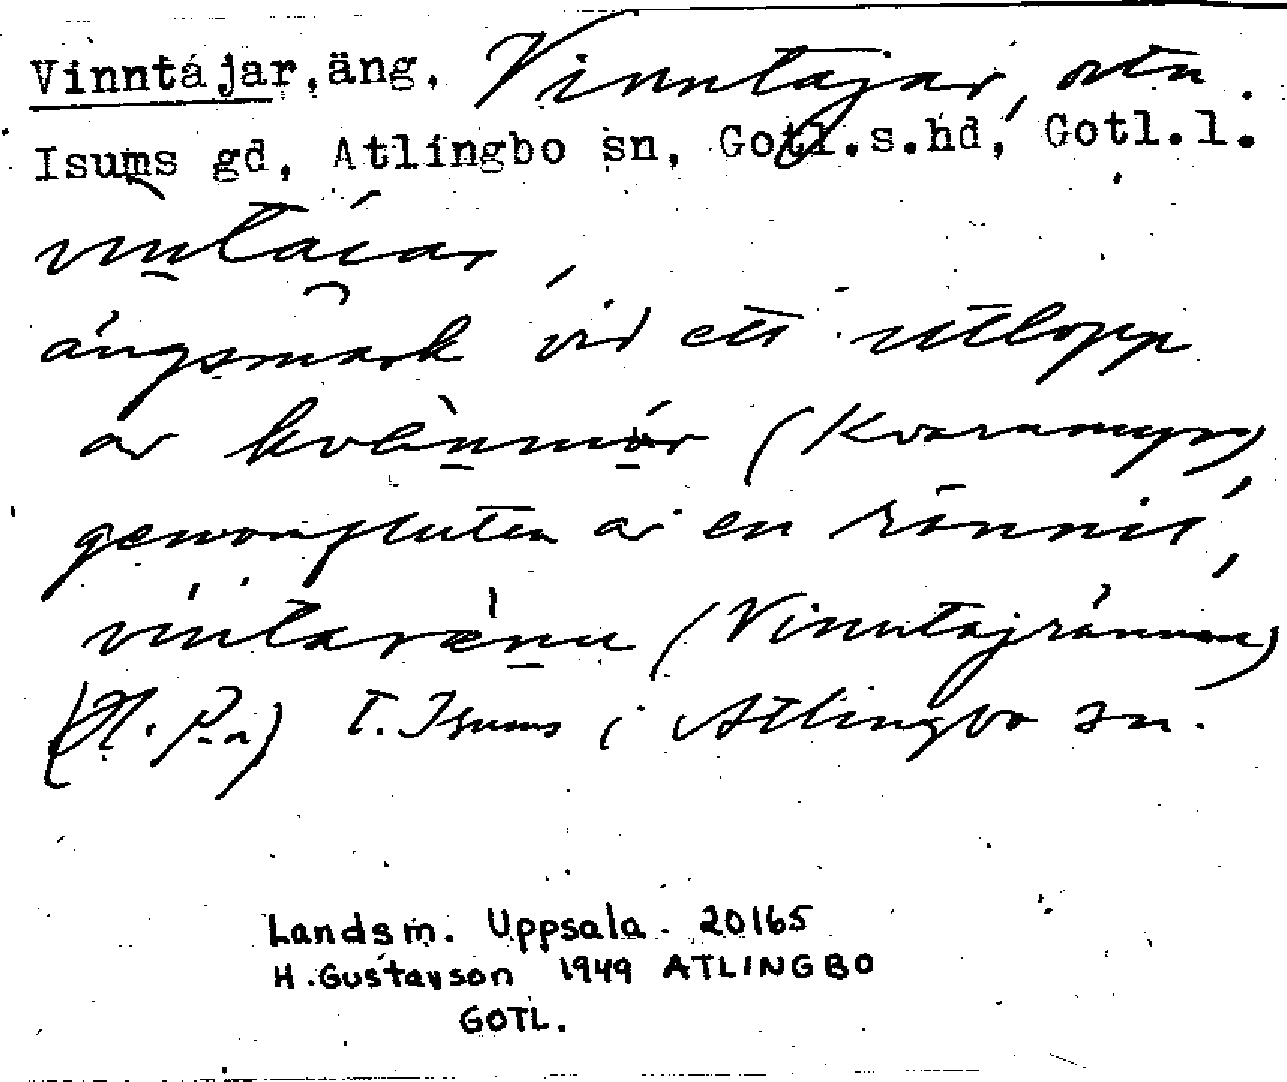 Vinntájar, äng. Vinntajar, ortn.
Isums gd, Atlingbo sn, Gotl.s.hd, Gotl.l.
vintáiar,
ängsmark vid ett utlopp
av kvànnmýr (Kvarnmyr)
genomfluten av en rännil,
vintarenu (Vinntajrännan)
T. Isums i Atlingbo sn.
Landsm. Uppsala. 20165
H. Gustavson 1949 ATLINGBO
GOTL.